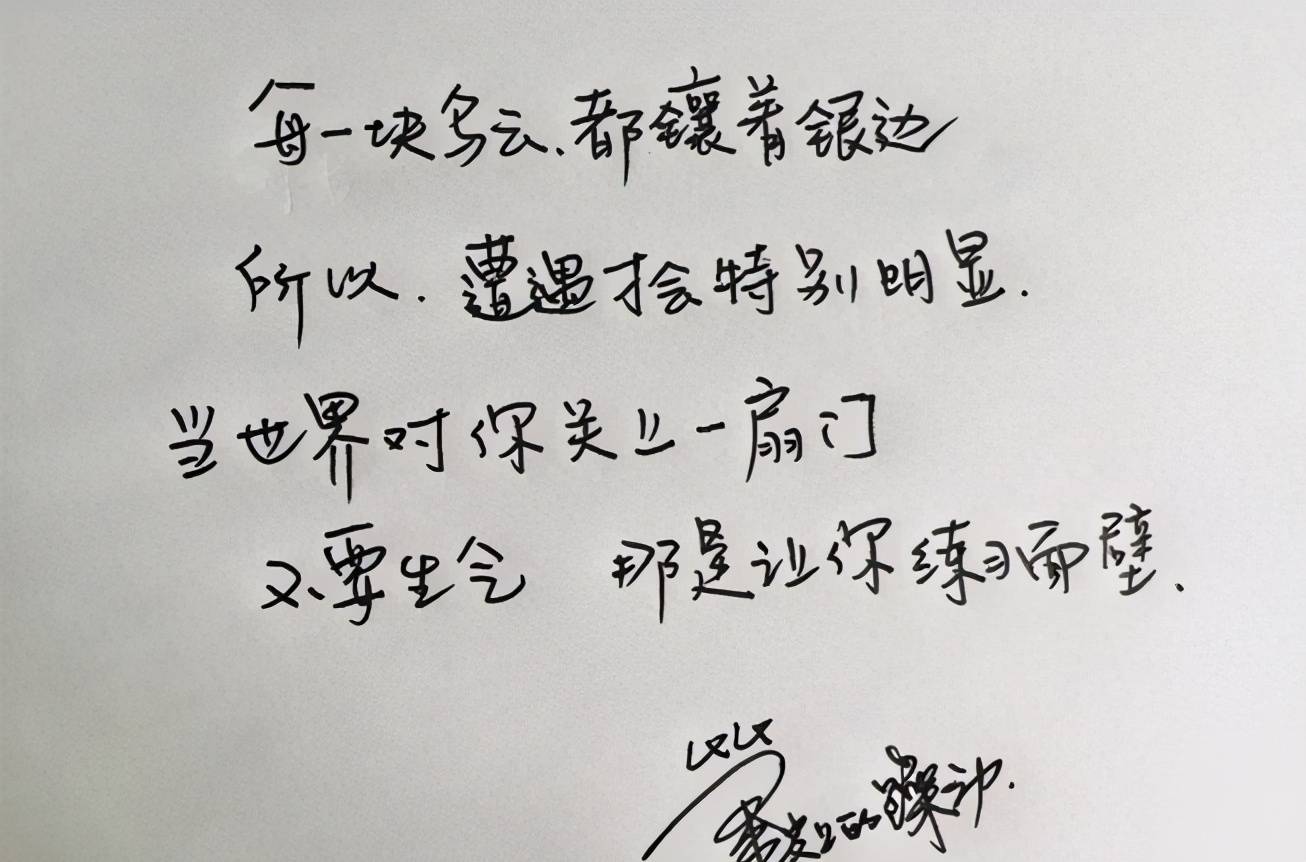 每一块乌云、都镶着银边
所以.遭遇才会特别明显.
当世界对你关上一扇门
不要生气 那是让你练习面壁.
的躁动.